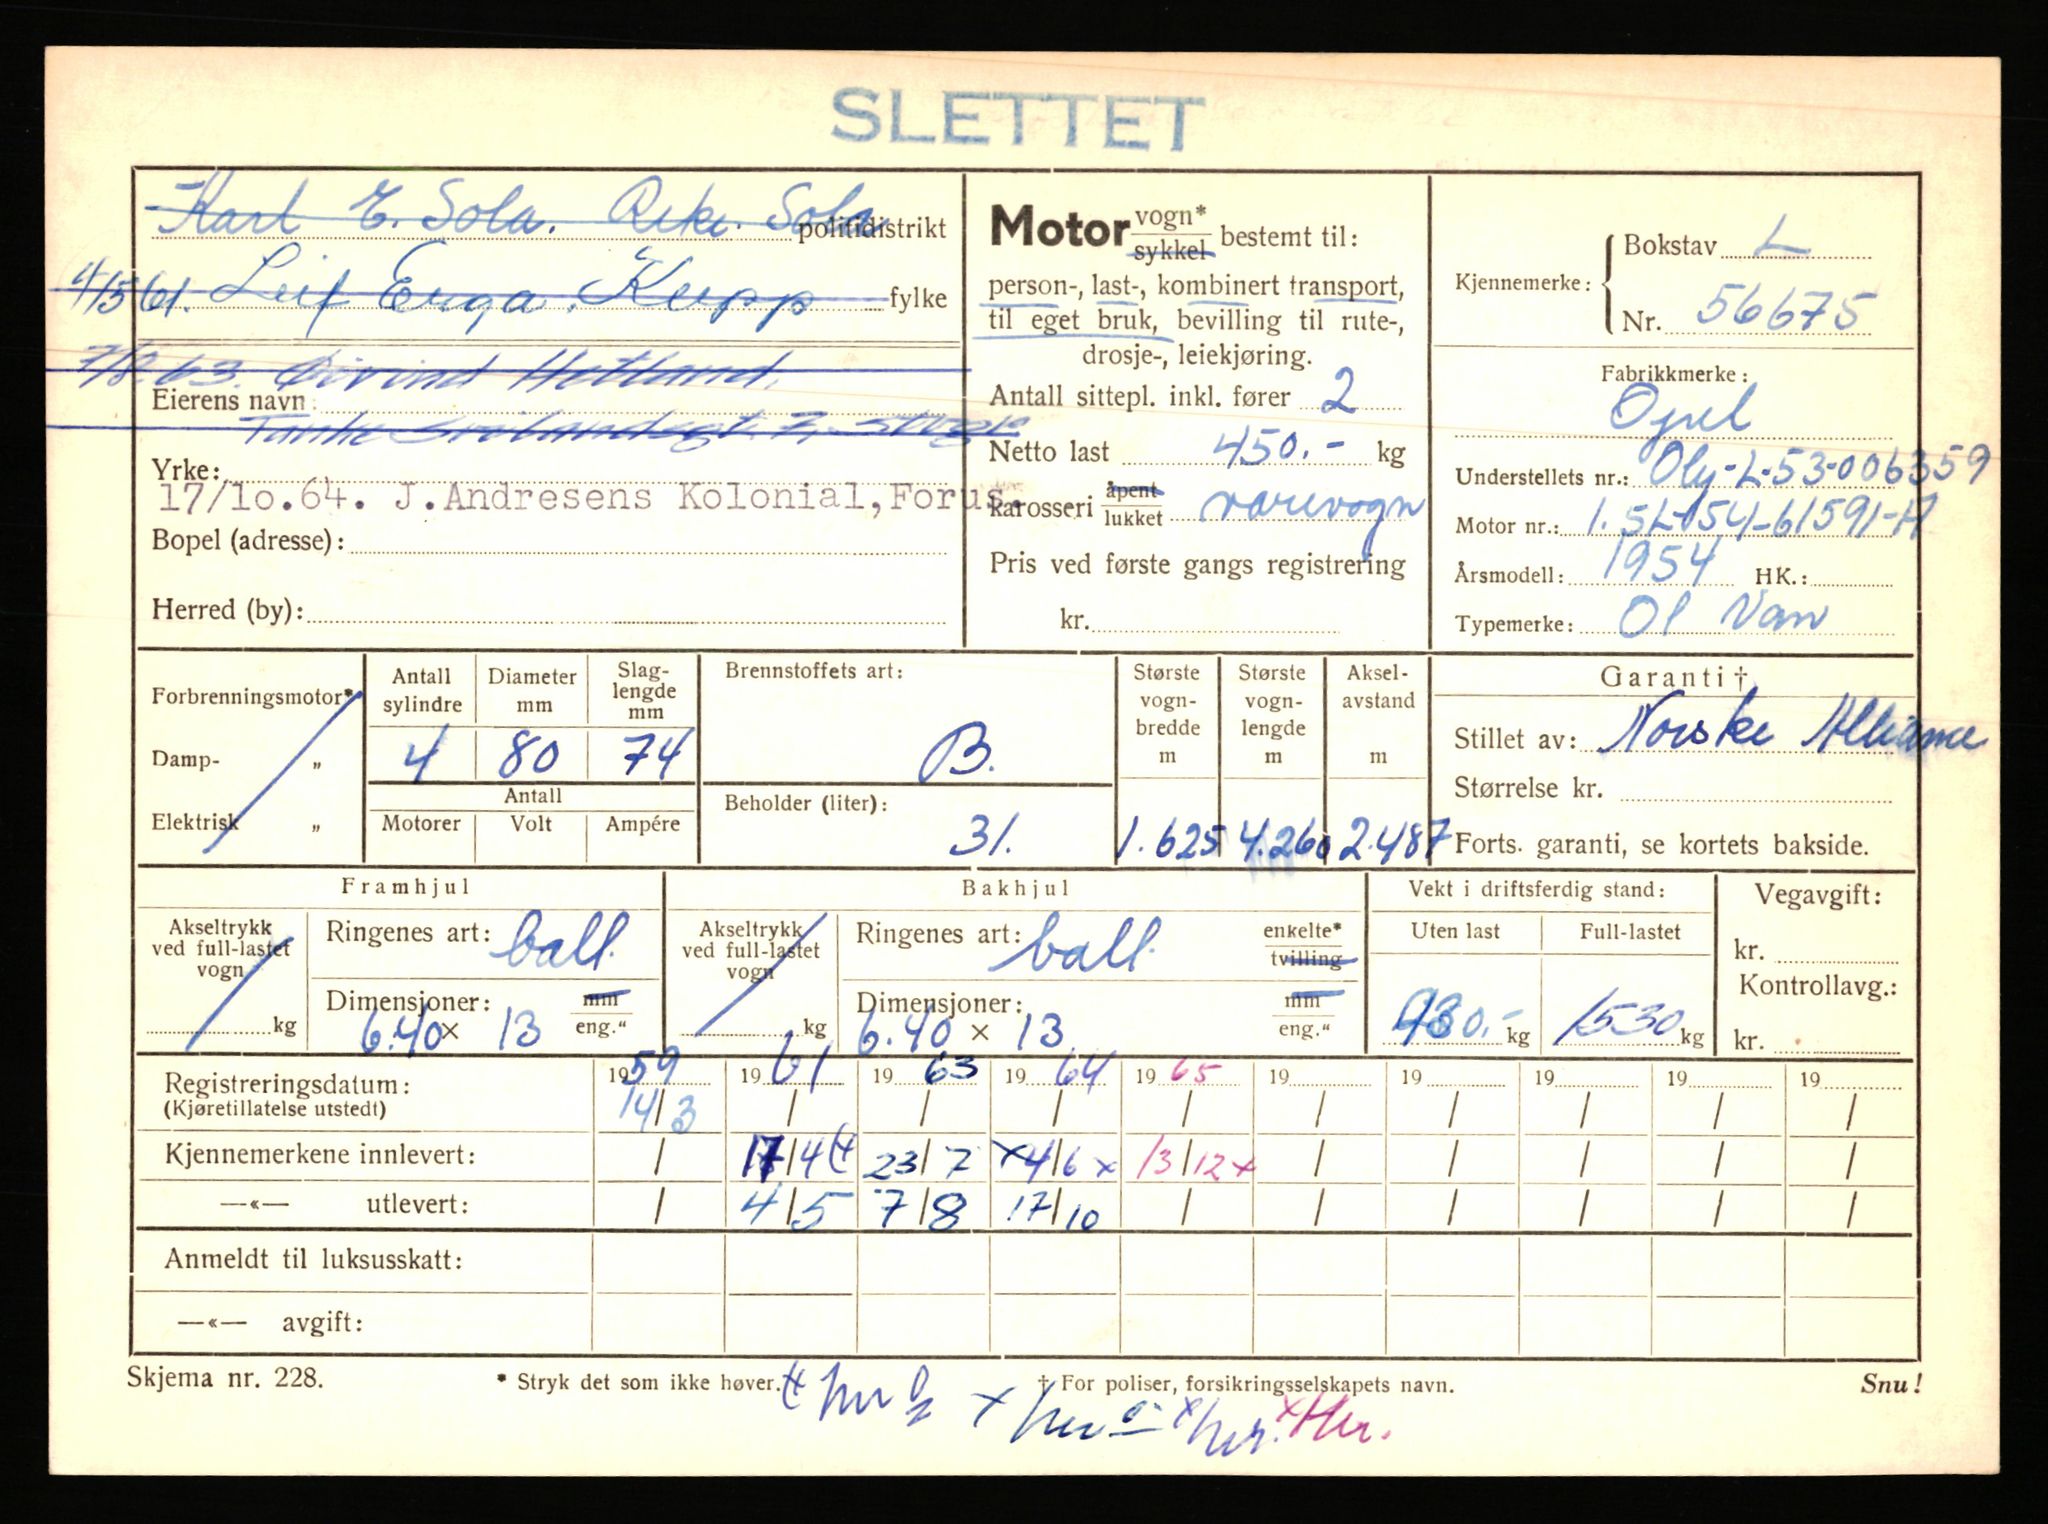 SLETTET
Karl E. Sola. Reke. Sola politidistrikt
4/5 61. Leif Erga. Klepp fylke
7/8.63. Øivind Hetland.
Eierens navn
Yrke:
17/10.64. J.Andresens Kolonial,Forus.
Bopel (adresse):
Herred (by):
Motor vogn* / sykkel bestemt til:
person-, last-, kombinert transport,
til eget bruk, bevilling til rute-,
drosje-, leiekjøring.
Antall sittepl. inkl. fører 2
Netto last 450.- kg
Karosseri åpent / lukket varevogn
Pris ved første gangs registrering
kr.
Kjennemerke: Bokstav L
Nr. 56675
Fabrikkmerke:
Opel
Understellets nr.: Oly-L-53-006359
Motor nr.: 1.5L-154-61591-H
Årsmodell: 1954 HK.:
Typemerke: Ol Van
Forbrenningsmotor*
Damp- „
Elektrisk „
Antall sylindre 4
Diameter mm 80
Slag-lengde mm 74
Antall
Motorer Volt Ampére
Brennstoffets art:
B.
Beholder (liter):
31.
Største vogn-bredde m 1.625
Største vogn-lengde m 4.260
Aksel-avstand m 2.487
Garanti †
Stillet av: Norske Alliance
Størrelse kr.
Forts. garanti, se kortets bakside.
Framhjul
Akseltrykk ved full-lastet vogn kg
Ringenes art: ball.
Dimensjoner: mm / eng."
6.40 x 13
Bakhjul
Akseltrykk ved full-lastet vogn kg
Ringenes art: ball. enkelte* / tvilling
Dimensjoner: mm / eng."
6.40 x 13
Vekt i driftsferdig stand:
Uten last Full-lastet
930.- kg 1530 kg
Vegavgift:
kr.
Kontrollavg.:
kr.
Registreringsdatum: 1959 1961 1963 1964 1965 19 19 19 19 19
(Kjøretillatelse utstedt) 14/3 / / / / / / / / /
Kjennemerkene innlevert: / 17/4 23/7 x4/6x 13/12x / / / / /
—«— utlevert: / 4/5 7/8 17/10 / / / / / /
Anmeldt til luksusskatt:
—«— avgift:
Skjema nr. 228. * Stryk det som ikke høver. † For poliser, forsikringsselskapets navn. Snu!